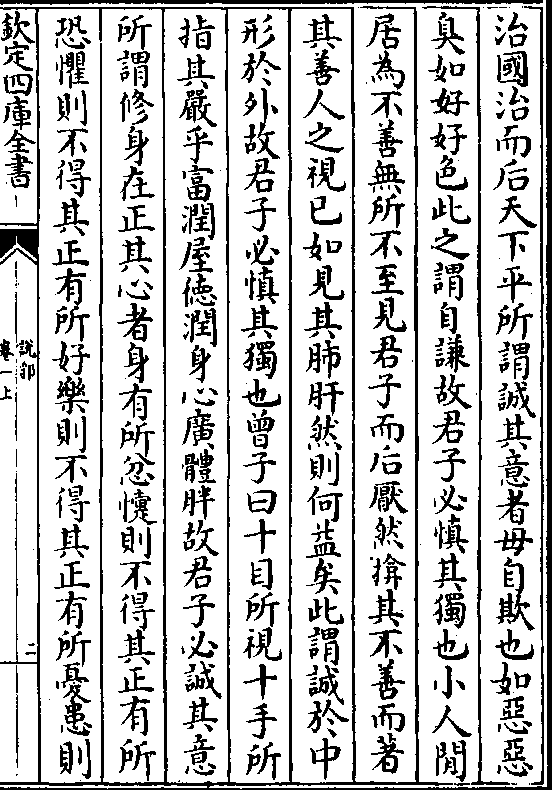 治國治而后天下平所謂誠其意者毋自欺也如惡惡
臭如好好色此之謂自謙故君子必慎其獨也小人閒
居為不善無所不至見君子而后厭然揜其不善而著
其善人之視已如見其肺肝然則何益矣此謂誠於中
形於外故君子必慎其獨也曾子曰十目所視十手所
指其嚴乎富潤屋徳潤身心廣體胖故君子必誠其意
所謂修身在正其心者身有所忿懥則不得其正有所
恐懼則不得其正有所好樂則不得其正有所憂患則
欽定四庫全書
說郛
卷一上
二